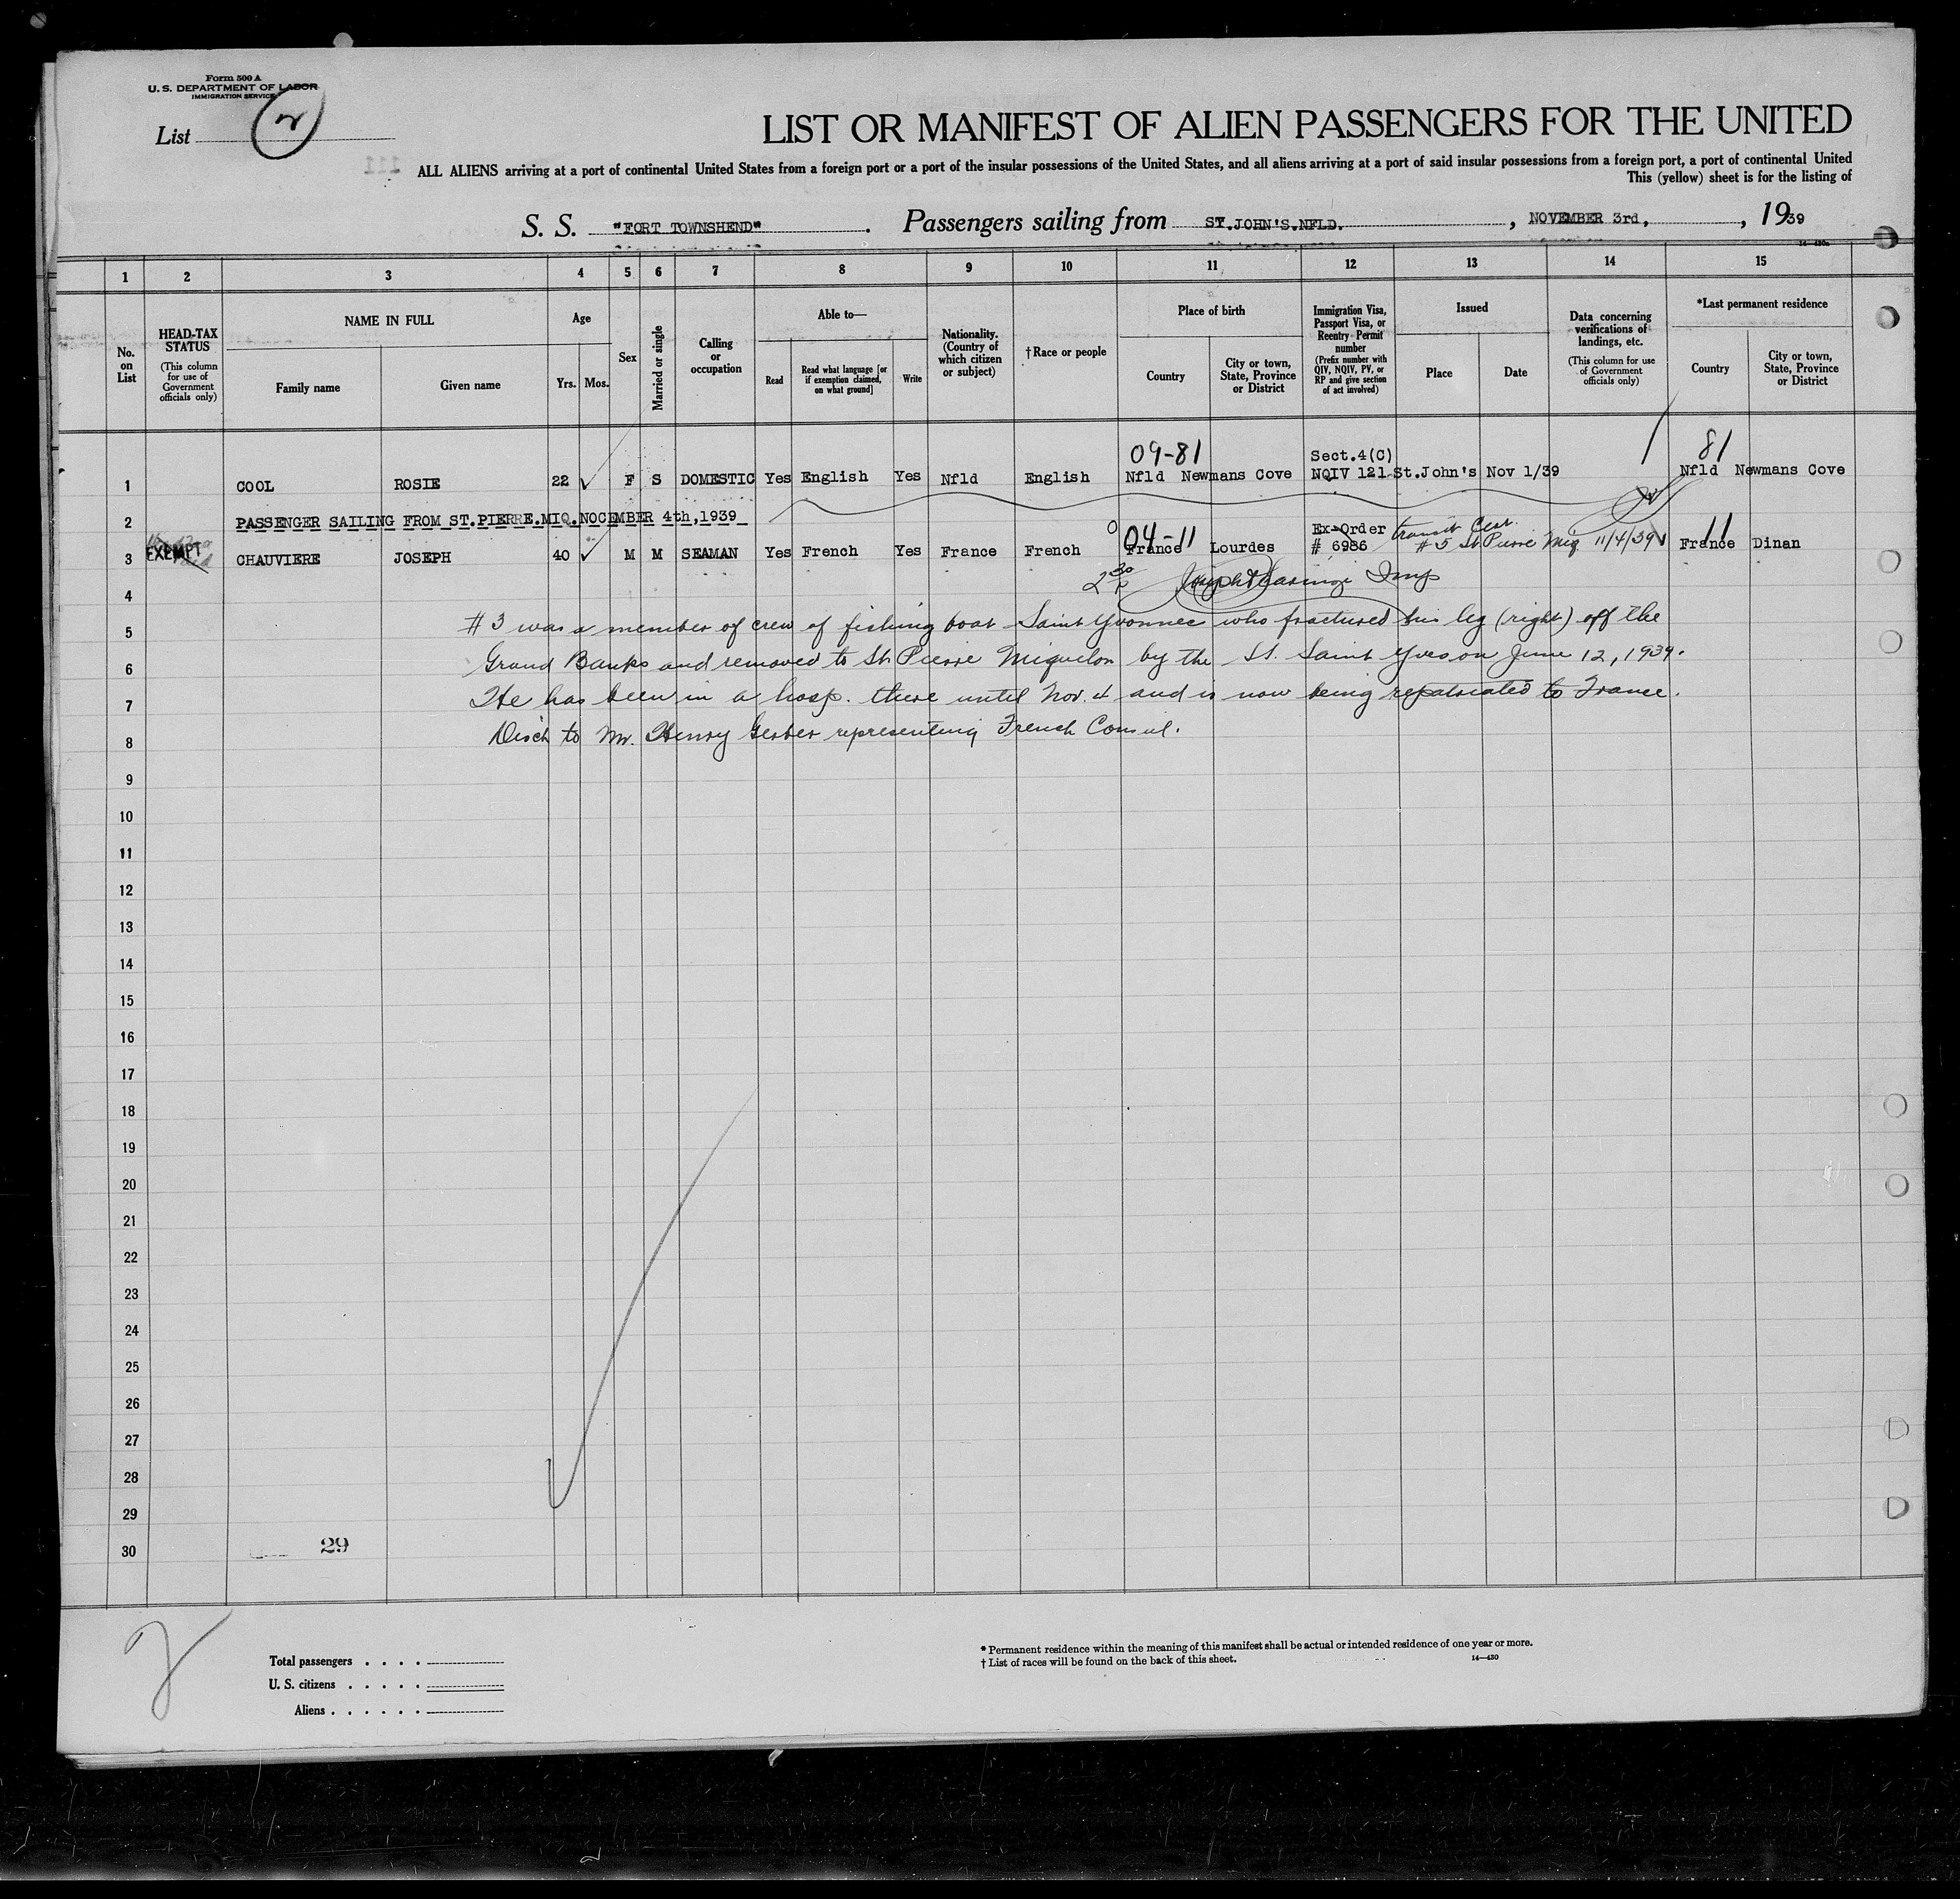 Form 500 A
U. S. DEPARTMENT OF LABOR
IMMIGRATION SERVICE
List 2
LIST OR MANIFEST OF ALIEN PASSENGERS FOR THE UNITED
ALL ALIENS arriving at a port of continental United States from a foreign port or a port of the insular possessions of the United States, and all aliens arriving at a port of said insular possessions from a foreign port, a port of continental United
This (yellow) sheet is for the listing of
S. S. "FORT TOWNSHEND". Passengers sailing from ST.JOHN'S.NFLD. , NOVEMBER 3rd, , 1939
1 2 3 4 5 6 7 8 9 10 11 12 13 14 15
No. on List
HEAD-TAX STATUS
(This column for use of Government officials only)
NAME IN FULL
Family name
Given name
Age
Yrs. Mos.
Sex
Married or single
Calling or occupation
Able to—
Read
Read what language [or if exemption claimed, on what ground]
Write
Nationality. (Country of which citizen or subject)
† Race or people
Place of birth
Country
City or town, State, Province or District
Immigration Visa, Passport Visa, or Reentry Permit number
(Prefix number with QIV, NQIV, PV, or RP and give section of act involved)
Issued
Place
Date
Data concerning verifications of landings, etc.
(This column for use of Government officials only)
*Last permanent residence
Country
City or town, State, Province or District
09-81 Sect.4(C) 81
1 COOL ROSIE 22 F S DOMESTIC Yes English Yes Nfld English Nfld Newmans Cove NQIV 121 St.John's Nov 1/39 Nfld Newmans Cove
2 PASSENGER SAILING FROM ST.PIERRE.MIQ.NOCEMBER 4th,1939
04-11 Ex-Order transit Cert. 11
3 EXEMPT CHAUVIERE JOSEPH 40 M M SEAMAN Yes French Yes France French France Lourdes # 6986 # 5 St Pierre Miq. 11/4/39 France Dinan
4
5 # 3 was a member of crew of fishing boat Saint Yvonnec who fractured his leg (right) off the
6 Grand Banks and removed to St Pierre Miquelon by the SS. Saint Yves on June 12, 1939.
7 He has been in a hosp. there until Nov. 4 and is now being repatriated to France.
8 Disch to Mr. Henry Gerber representing French Consul.
9
10
11
12
13
14
15
16
17
18
19
20
21
22
23
24
25
26
27
28
29
30 29
2
Total passengers . . . .
U. S. citizens . . . . .
Aliens . . . . . .
* Permanent residence within the meaning of this manifest shall be actual or intended residence of one year or more.
† List of races will be found on the back of this sheet.
14—430